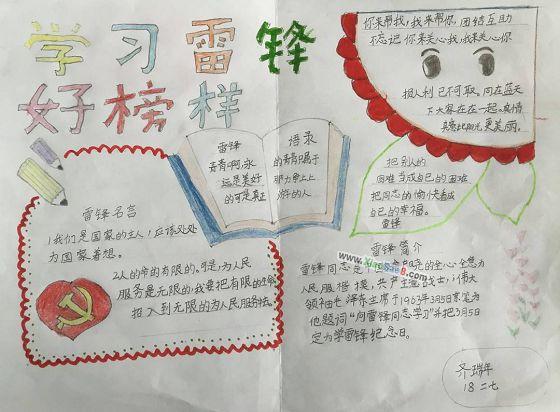 学习雷锋
好榜样
你来帮我,我来帮你,团结互助
不忘记你来关心我,我来关心你
损人利己不可取。同在蓝天
下大家在在一起。真情
真意比阳光更美丽。
雷锋
青春啊,永
远是美好
的可是真正
语录
的青春,只属于
那力争上
游的人
把别人的
困难当成自己的困难
把同志的愉快看成
自己的幸福。
雷锋
雷锋名言
1我们是国家的主人,应该处处
为国家着想。
2人的命的有限的。可是,为人民
服务是无限的,我要把有限的生命
投入到无限的为人民服务去。
雷锋简介
雷锋同志是
全心全意为
人民服
务
楷模,共产主义战士,伟大
领袖毛泽东主席于1963年3月5日亲笔为
他题词"向雷锋同志学习"并把3月5日
定为学雷锋纪念日。
齐瑞年
18 二七
www.XiaoSaoB.com